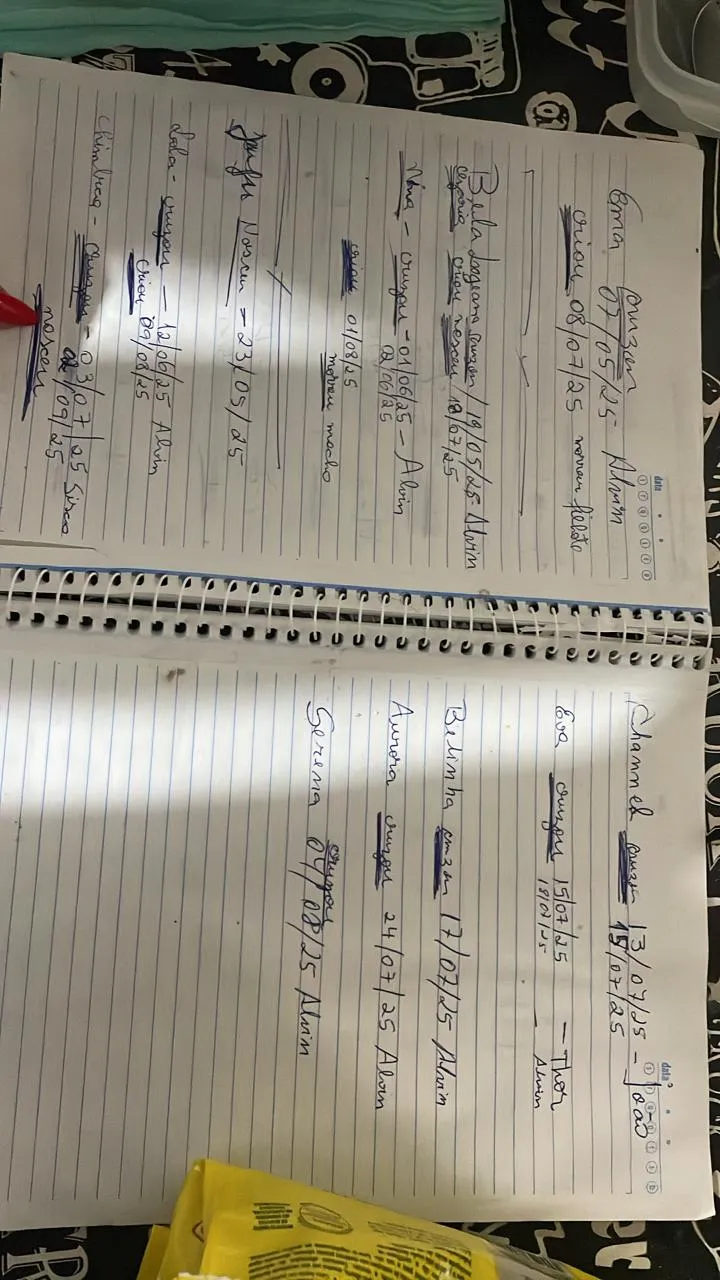 Ema cruzou
07/05/25 - Alvim
criou 08/07/25 morreu filhote
Bela Lageana cruzou / 19/05/25 Alvim
cesária criou nasceu 18/07/25
Nina - cruzou - 01/06/25 - Alvin
02/06/25
criou 01/08/25
morreu macho
Nasceu - 23/05/25
Lola - cruzou - 12/06/25 Alvin
criou 09/08/25
cruzou - 03/07/25 Sisco
02/09/25
nasceu
data
Channel cruzou 13/07/25 - João
15/07/25
Eva cruzou 15/07/25 - Thor
18/07/25 - Alvim
Belinha cruzou 17/07/25 Alvim
Aurora cruzou 24/07/25 Alvin
cruzou
Serena 04/08/25 Alvim
data